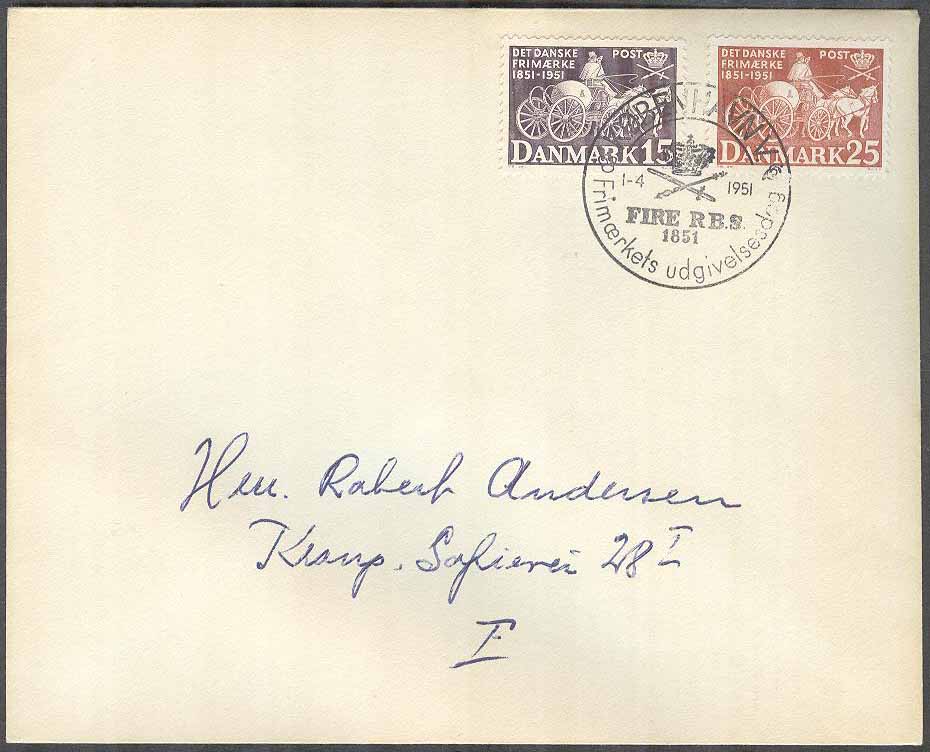 DET DANSKE POST
FRIMÆRKE
1851-1951
DANMARK 15
DET DANSKE POST
FRIMÆRKE
1851-1951
DANMARK 25
KØBENHAVN V.
1-4 1951
FIRE R.B.S.
1851
Frimærkets udgivelsesdag
Herr. Robert Andersen
Kronp. Sofievei 28 I
F